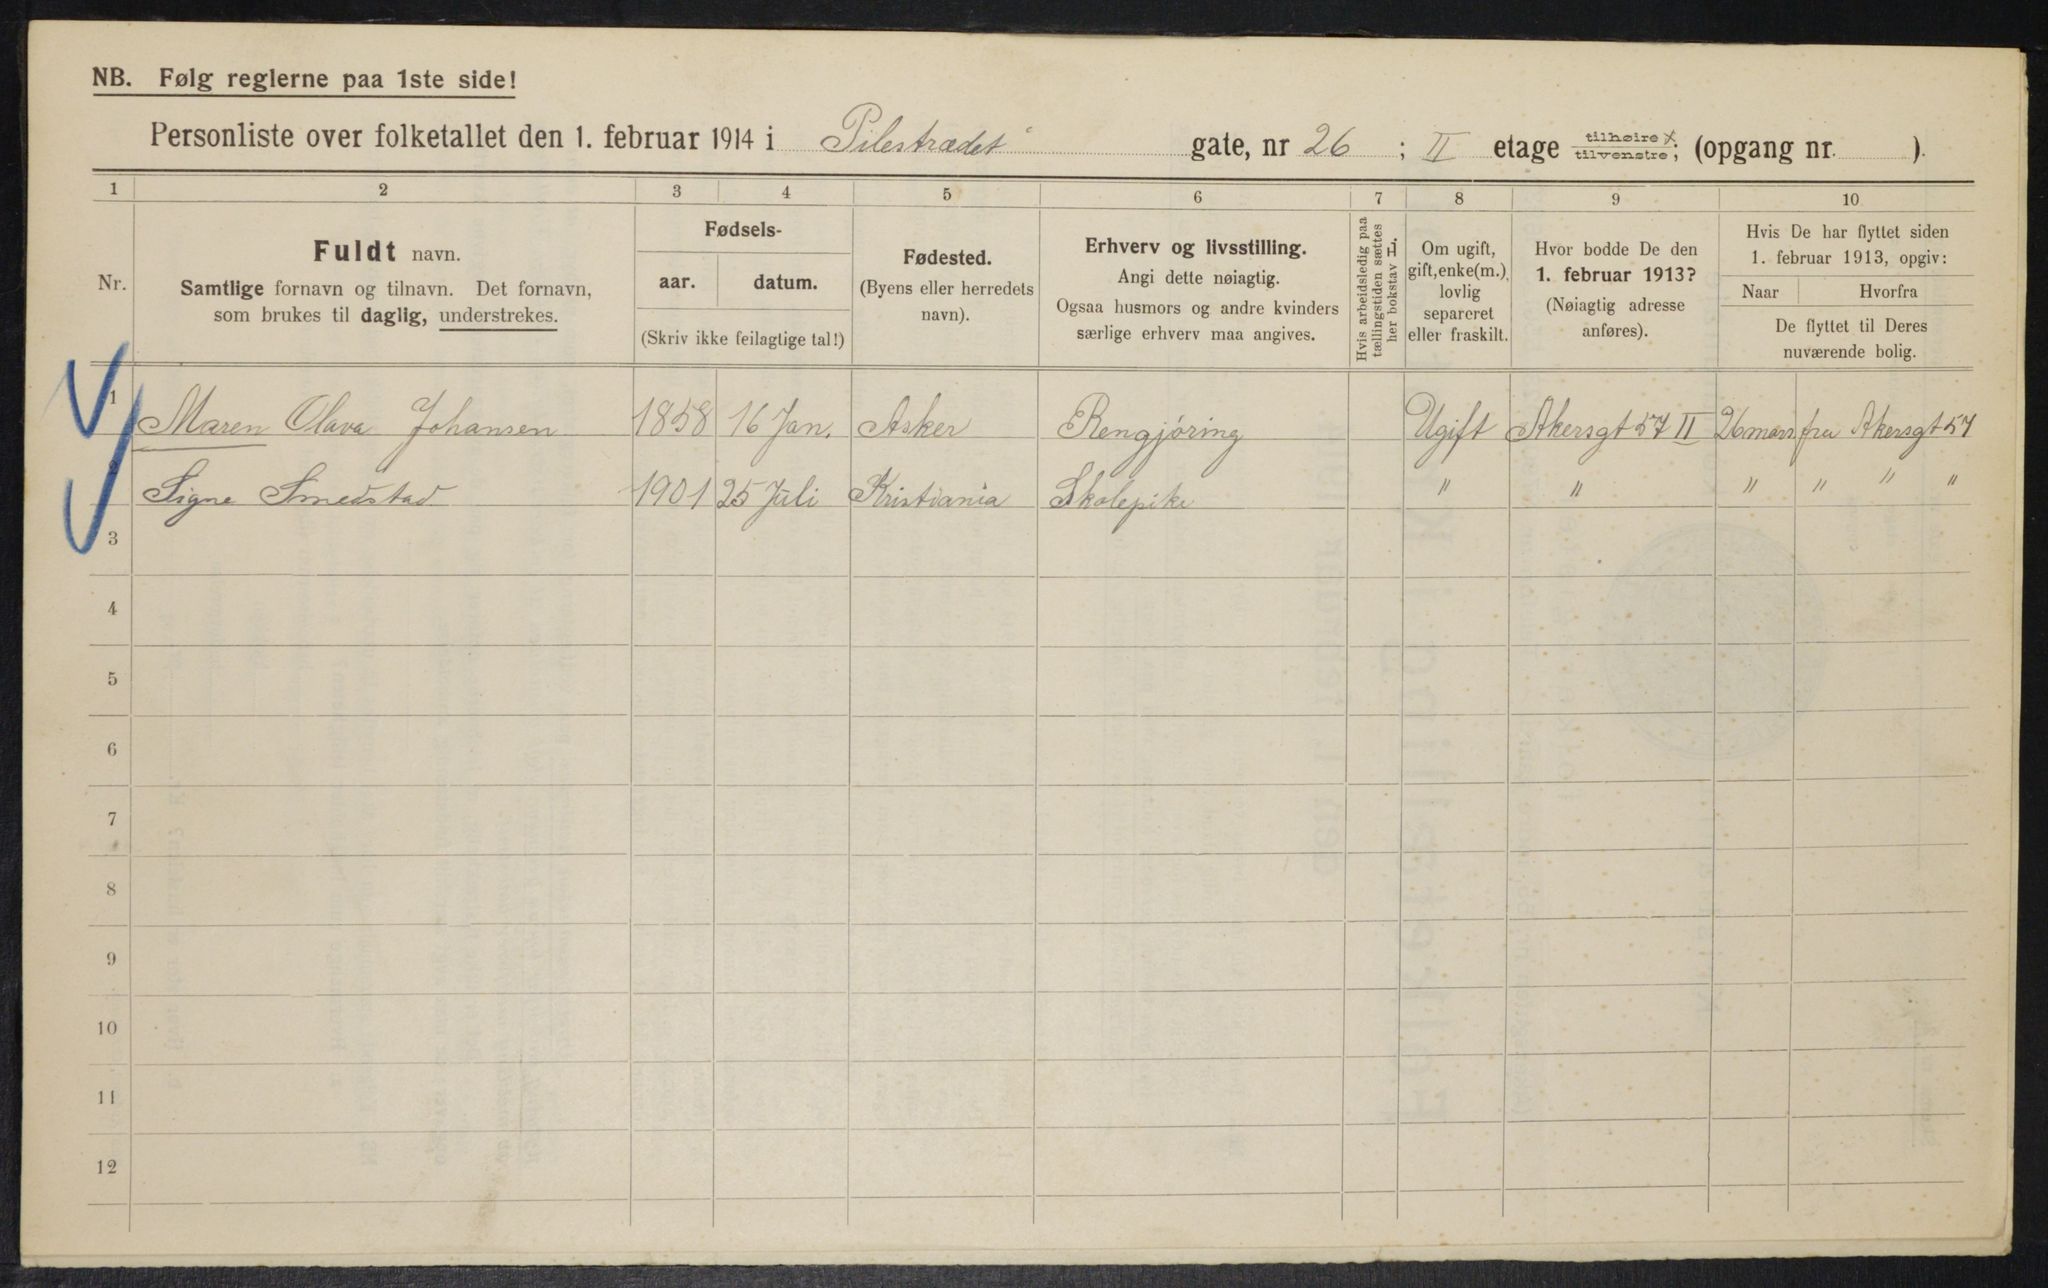 NB. Følg reglerne paa 1ste side!
Personliste over folketallet den 1. februar 1914 i Pilestrædet gate, nr 26 ; II etage tilhøire x / tilvenstre; (opgang nr. ).
1 2 3 4 5 6 7 8 9 10
Nr.
Fuldt navn.
Samtlige fornavn og tilnavn. Det fornavn,
som brukes til daglig, understrekes.
Fødsels-
aar. datum.
(Skriv ikke feilagtige tal!)
Fødested.
(Byens eller herredets
navn).
Erhverv og livsstilling.
Angi dette nøiagtig.
Ogsaa husmors og andre kvinders
særlige erhverv maa angives.
Hvis arbeidsledig paa
tællingstiden sættes
her bokstav L.
Om ugift,
gift, enke(m.),
lovlig
separeret
eller fraskilt.
Hvor bodde De den
1. februar 1913?
(Nøiagtig adresse
anføres).
Hvis De har flyttet siden
1. februar 1913, opgiv:
Naar Hvorfra
De flyttet til Deres
nuværende bolig.
1 Maren Olava Johansen 1858 16 Jan. Asker Rengjøring Ugift Akersgt 57 II 26 mars fra Akersgt 57
2 Signe Smedstad 1901 25 Juli Kristiania Skolepike " " " " " "
3
4
5
6
7
8
9
10
11
12